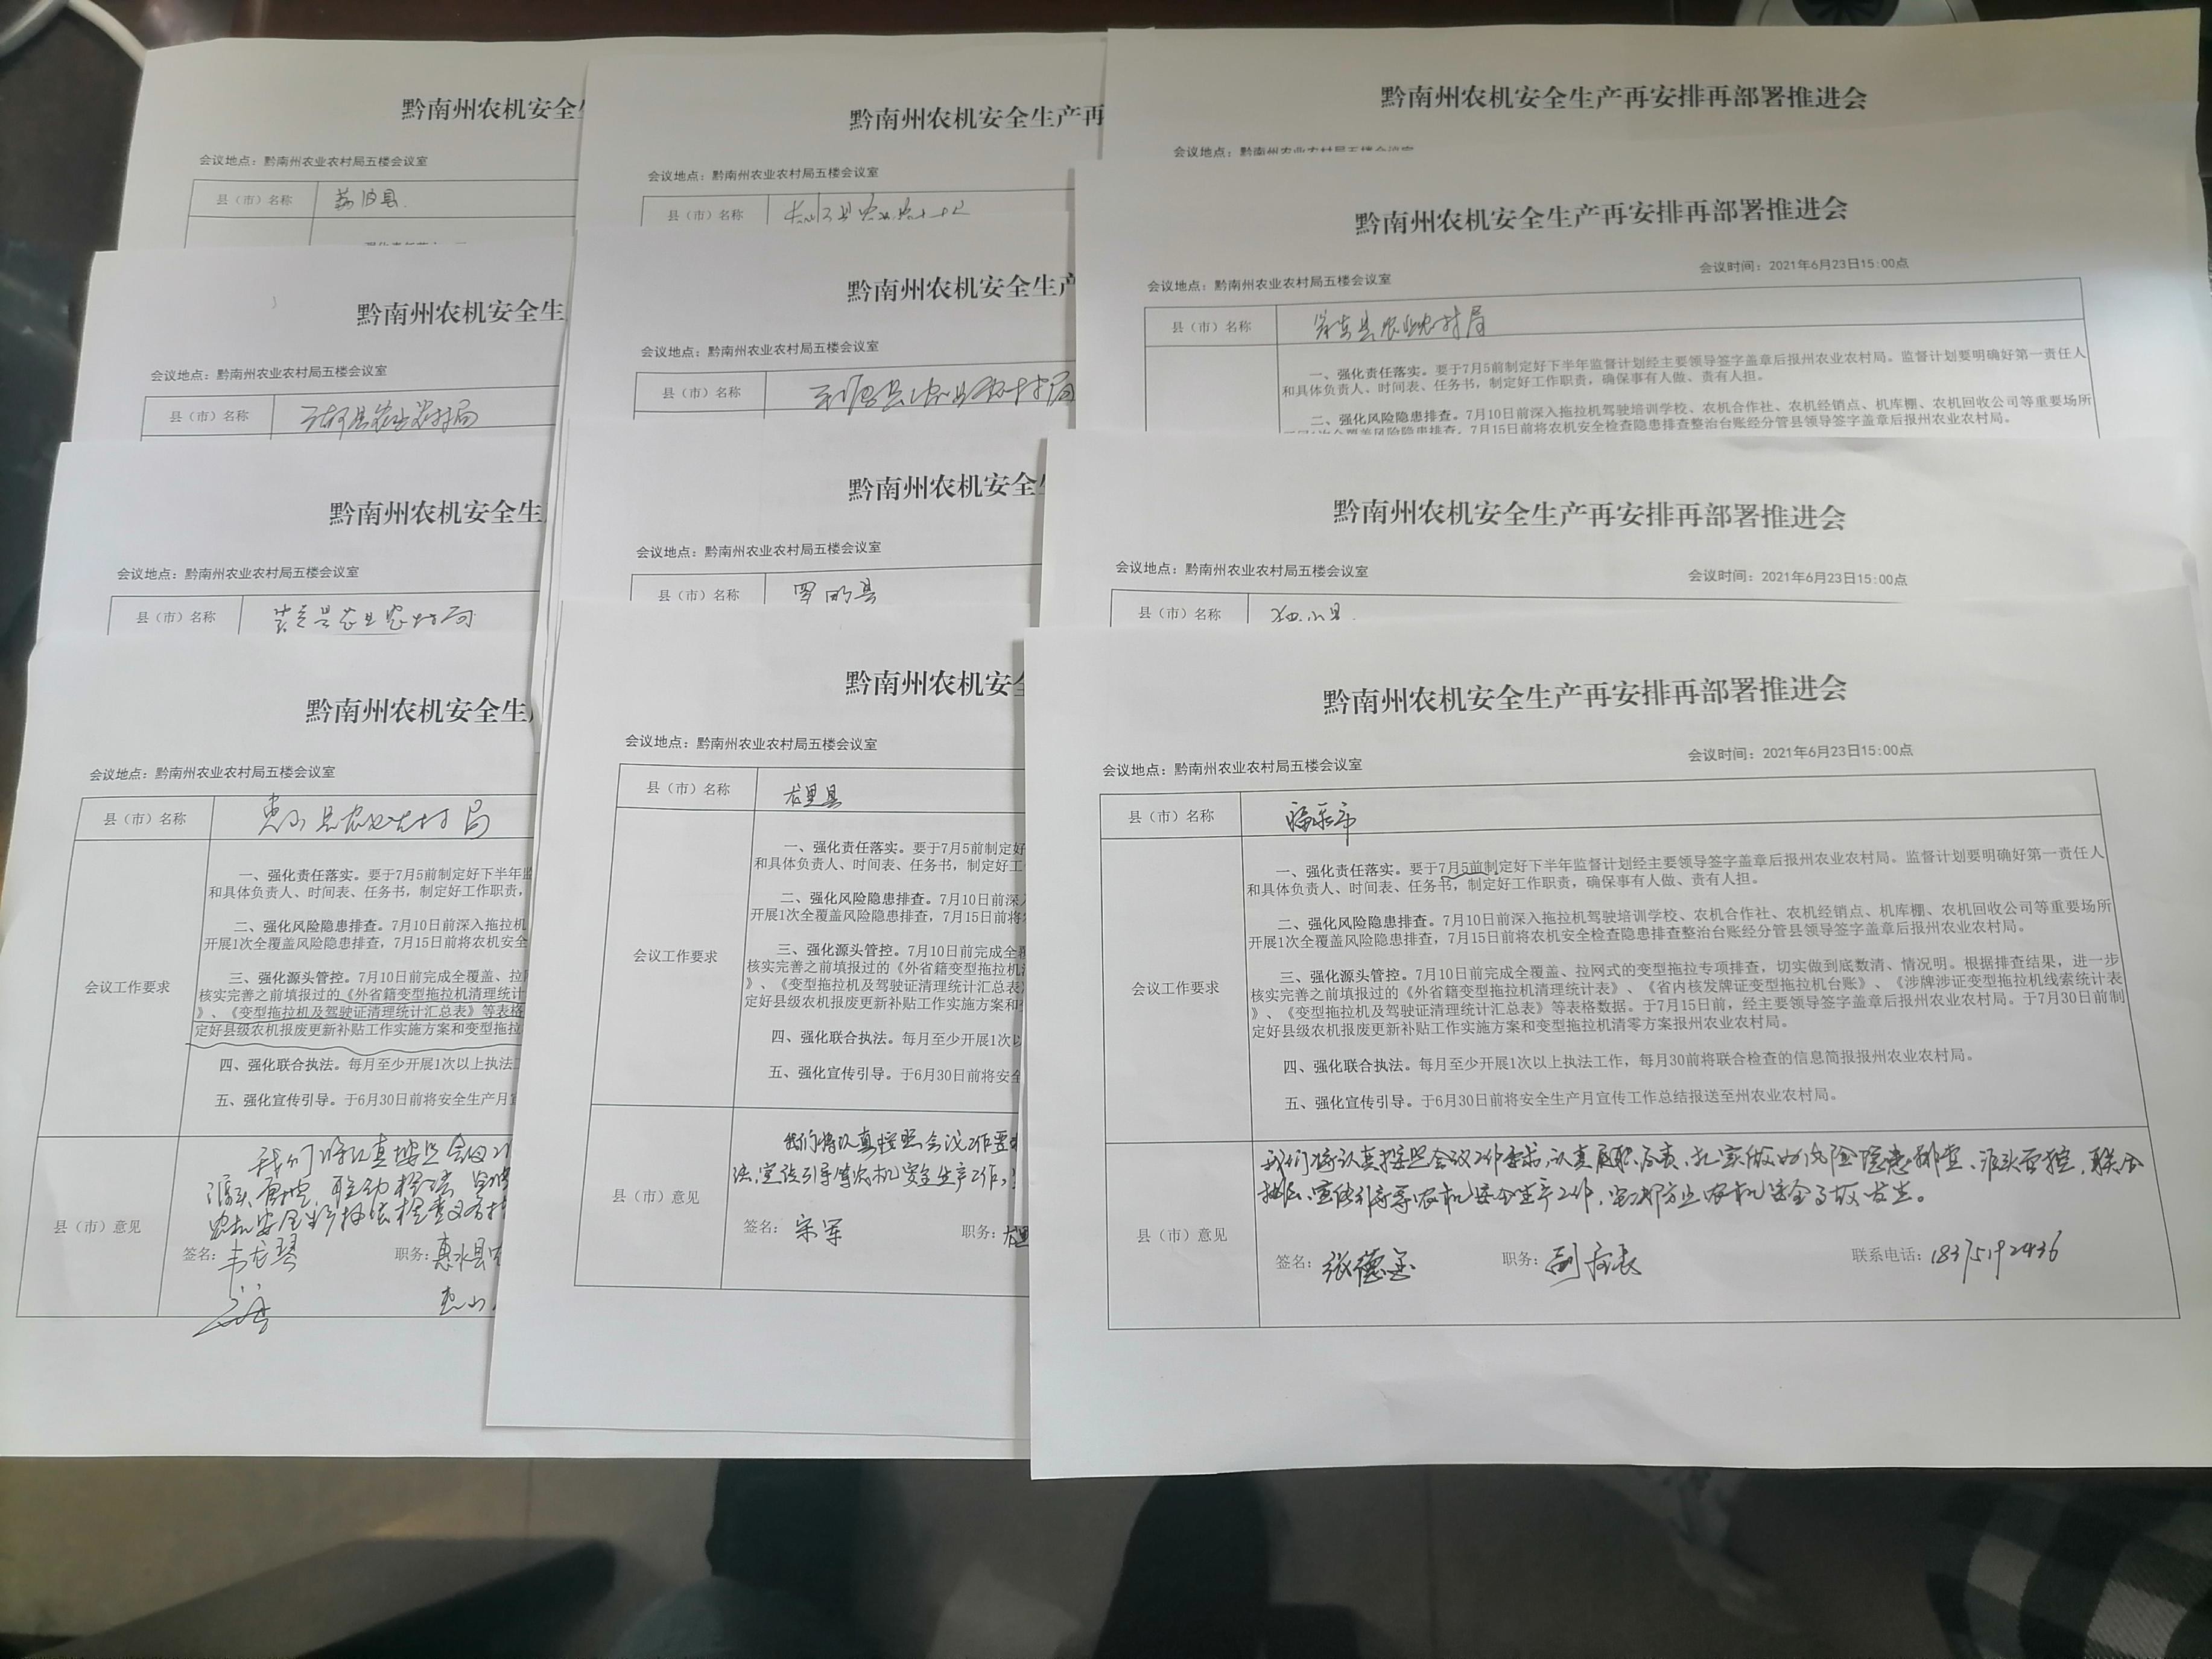 黔南州农机安全生
会议地点：黔南州农业农村局五楼会议室
县（市）名称
荔波县
黔南州农机安全生
会议地点：黔南州农业农村局五楼会议室
县（市）名称
农业农村局
黔南州农机安全生
会议地点：黔南州农业农村局五楼会议室
县（市）名称
县农业农村局
黔南州农机安全生
会议地点：黔南州农业农村局五楼会议室
县（市）名称
惠水县农业农村局
会议工作要求
一、强化责任落实。要于7月5前制定好下半年监
和具体负责人、时间表、任务书，制定好工作职责，
二、强化风险隐患排查。7月10日前深入拖拉机
开展1次全覆盖风险隐患排查，7月15日前将农机安全
三、强化源头管控。7月10日前完成全覆盖、拉
核实完善之前填报过的《外省籍变型拖拉机清理统计
》、《变型拖拉机及驾驶证清理统计汇总表》等表格
定好县级农机报废更新补贴工作实施方案和变型拖拉
四、强化联合执法。每月至少开展1次以上执法工
五、强化宣传引导。于6月30日前将安全生产月宣
县（市）意见
我们将认真按照会议
农机安全
签名：
职务：惠水县
黔南州农机安全生产再
会议地点：黔南州农业农村局五楼会议室
县（市）名称
黔南州农机安全生产
会议地点：黔南州农业农村局五楼会议室
县（市）名称
县农业农村局
黔南州农机安全
会议地点：黔南州农业农村局五楼会议室
县（市）名称
罗甸县
黔南州农机安全
会议地点：黔南州农业农村局五楼会议室
县（市）名称
龙里县
会议工作要求
一、强化责任落实。要于7月5前制定好
和具体负责人、时间表、任务书，制定好工
二、强化风险隐患排查。7月10日前深
开展1次全覆盖风险隐患排查，7月15日前将
三、强化源头管控。7月10日前完成全覆
核实完善之前填报过的《外省籍变型拖拉机
》、《变型拖拉机及驾驶证清理统计汇总表》
定好县级农机报废更新补贴工作实施方案和
四、强化联合执法。每月至少开展1次
五、强化宣传引导。于6月30日前将安
县（市）意见
我们将认真按照会议工作要
法、宣传引导等农机安全生产工作，
签名：宋军
职务：龙里
黔南州农机安全生产再安排再部署推进会
会议地点：黔南州农业农村局五楼会议室
黔南州农机安全生产再安排再部署推进会
会议地点：黔南州农业农村局五楼会议室
会议时间：2021年6月23日15:00点
县（市）名称
县农业农村局
一、强化责任落实。要于7月5前制定好下半年监督计划经主要领导签字盖章后报州农业农村局。监督计划要明确好第一责任人
和具体负责人、时间表、任务书，制定好工作职责，确保事有人做、责有人担。
二、强化风险隐患排查。7月10日前深入拖拉机驾驶培训学校、农机合作社、农机经销点、机库棚、农机回收公司等重要场所
开展1次全覆盖风险隐患排查，7月15日前将农机安全检查隐患排查整治台账经分管县领导签字盖章后报州农业农村局。
黔南州农机安全生产再安排再部署推进会
会议地点：黔南州农业农村局五楼会议室
会议时间：2021年6月23日15:00点
县（市）名称
独山县
黔南州农机安全生产再安排再部署推进会
会议地点：黔南州农业农村局五楼会议室
会议时间：2021年6月23日15:00点
县（市）名称
福泉市
会议工作要求
一、强化责任落实。要于7月5前制定好下半年监督计划经主要领导签字盖章后报州农业农村局。监督计划要明确好第一责任人
和具体负责人、时间表、任务书，制定好工作职责，确保事有人做、责有人担。
二、强化风险隐患排查。7月10日前深入拖拉机驾驶培训学校、农机合作社、农机经销点、机库棚、农机回收公司等重要场所
开展1次全覆盖风险隐患排查，7月15日前将农机安全检查隐患排查整治台账经分管县领导签字盖章后报州农业农村局。
三、强化源头管控。7月10日前完成全覆盖、拉网式的变型拖拉专项排查，切实做到底数清、情况明。根据排查结果，进一步
核实完善之前填报过的《外省籍变型拖拉机清理统计表》、《省内核发牌证变型拖拉机台账》、《涉牌涉证变型拖拉机线索统计表
》、《变型拖拉机及驾驶证清理统计汇总表》等表格数据。于7月15日前，经主要领导签字盖章后报州农业农村局。于7月30日前制
定好县级农机报废更新补贴工作实施方案和变型拖拉机清零方案报州农业农村局。
四、强化联合执法。每月至少开展1次以上执法工作，每月30前将联合检查的信息简报报州农业农村局。
五、强化宣传引导。于6月30日前将安全生产月宣传工作总结报送至州农业农村局。
县（市）意见
我们将认真按照会议工作要求，认真履职履责，扎实做好风险隐患排查、源头管控，联合
执法、宣传引导等农机安全生产工作，坚决防止农机安全事故发生。
签名：张德
职务：副局长
联系电话：18375192436